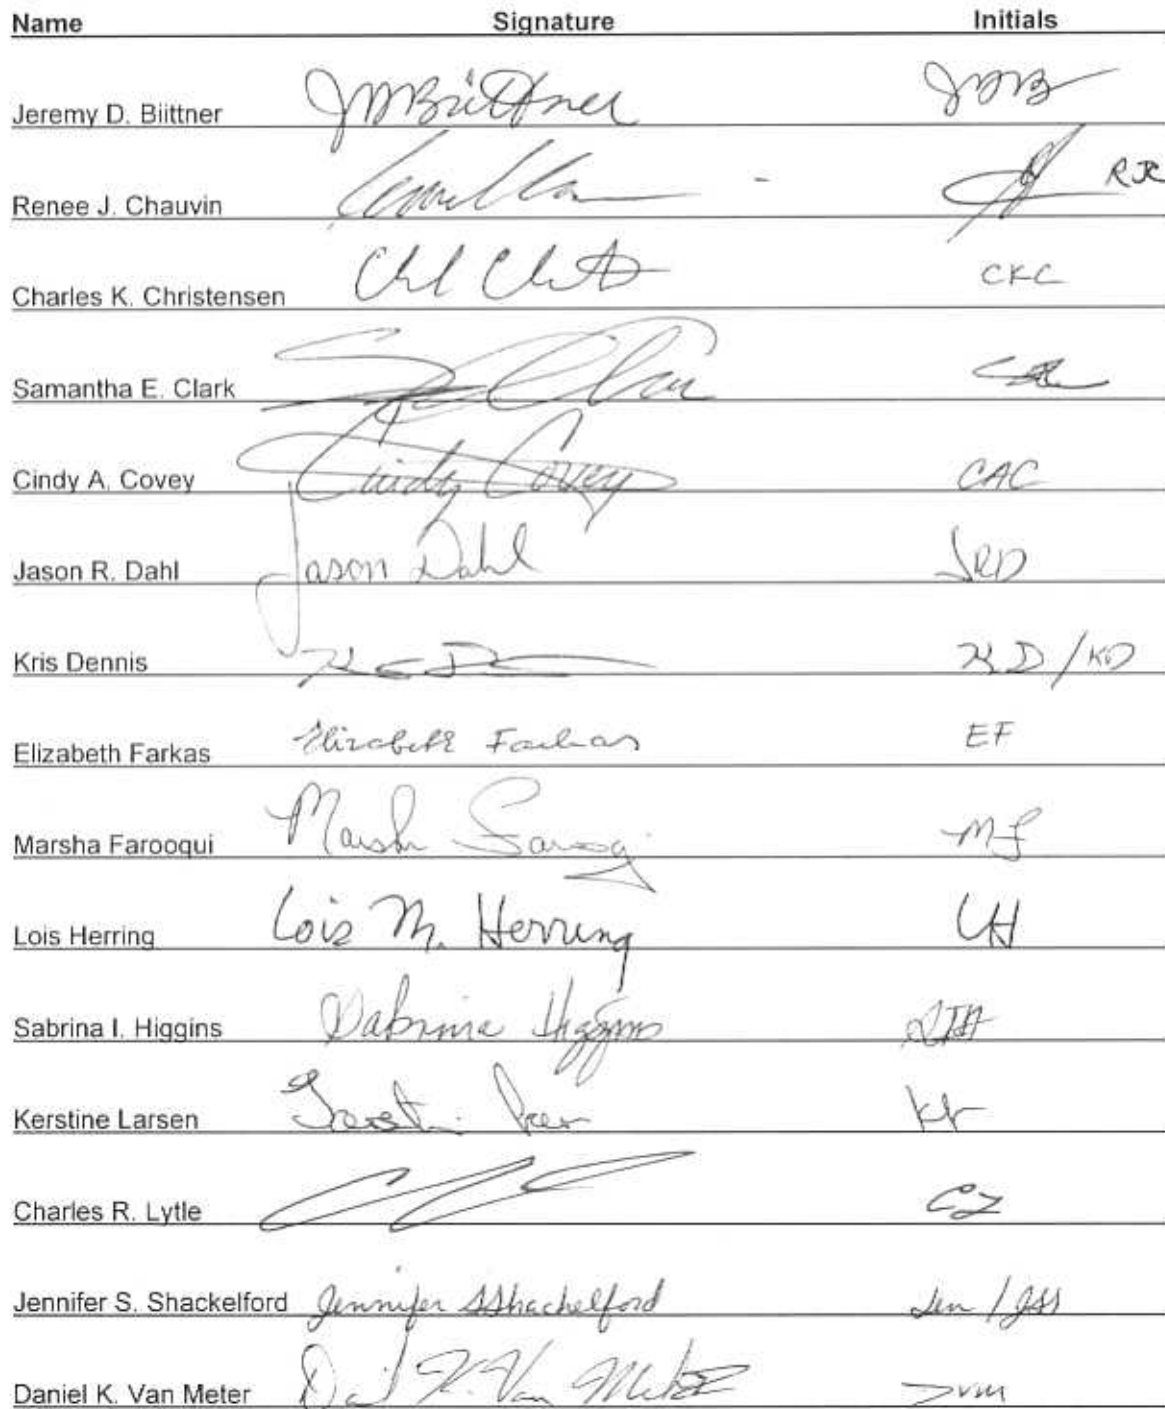 Name Signature Initials
Jeremy D. Biittner JDBiittner JDB
Renee J. Chauvin RJC
Charles K. Christensen CKC
Samantha E. Clark
Cindy A. Covey Cindy Covey CAC
Jason R. Dahl Jason Dahl JRD
Kris Dennis KD / KD
Elizabeth Farkas Elizabeth Farkas EF
Marsha Farooqui Marsha MF
Lois Herring Lois M. Herring LH
Sabrina I. Higgins Sabrina Higgins SIH
Kerstine Larsen
Charles R. Lytle CL
Jennifer S. Shackelford Jennifer SShackelford Jen / JSS
Daniel K. Van Meter Daniel K. Van Meter DVM